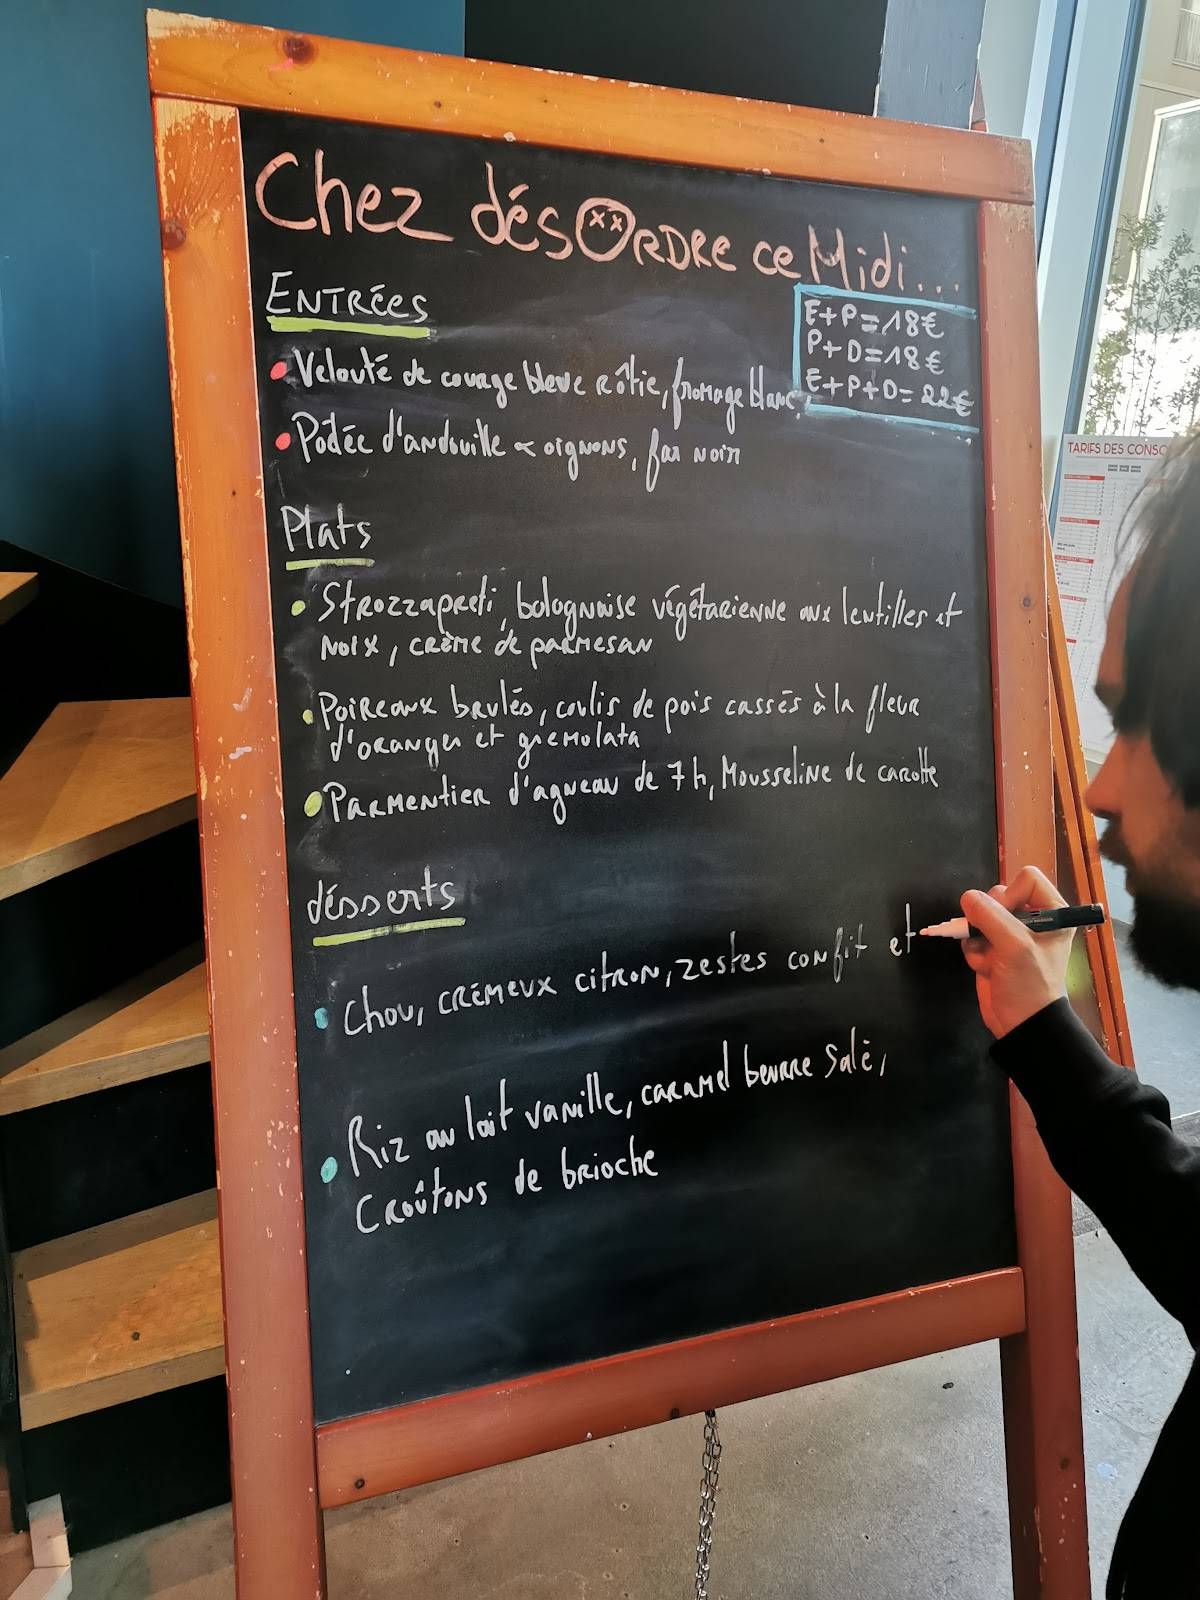 Chez désORDRE ce Midi...
ENTRÉES
E+P=18€
P+D=18€
E+P+D=22€
• Velouté de courge bleue rôtie, fromage blanc,
• Potée d'andouille & oignons, far noir
Plats
• Strozzapreti, bolognaise végétarienne aux lentilles et
noix, crème de parmesan
• Poireaux brulés, coulis de pois cassés à la fleur
d'oranger et gremolata
• Parmentier d'agneau de 7h, Mousseline de carotte
désserts
• Chou, crémeux citron, zestes confit et
• Riz au lait vanille, caramel beurre salé,
Croûtons de brioche
TARIFS DES CONSO